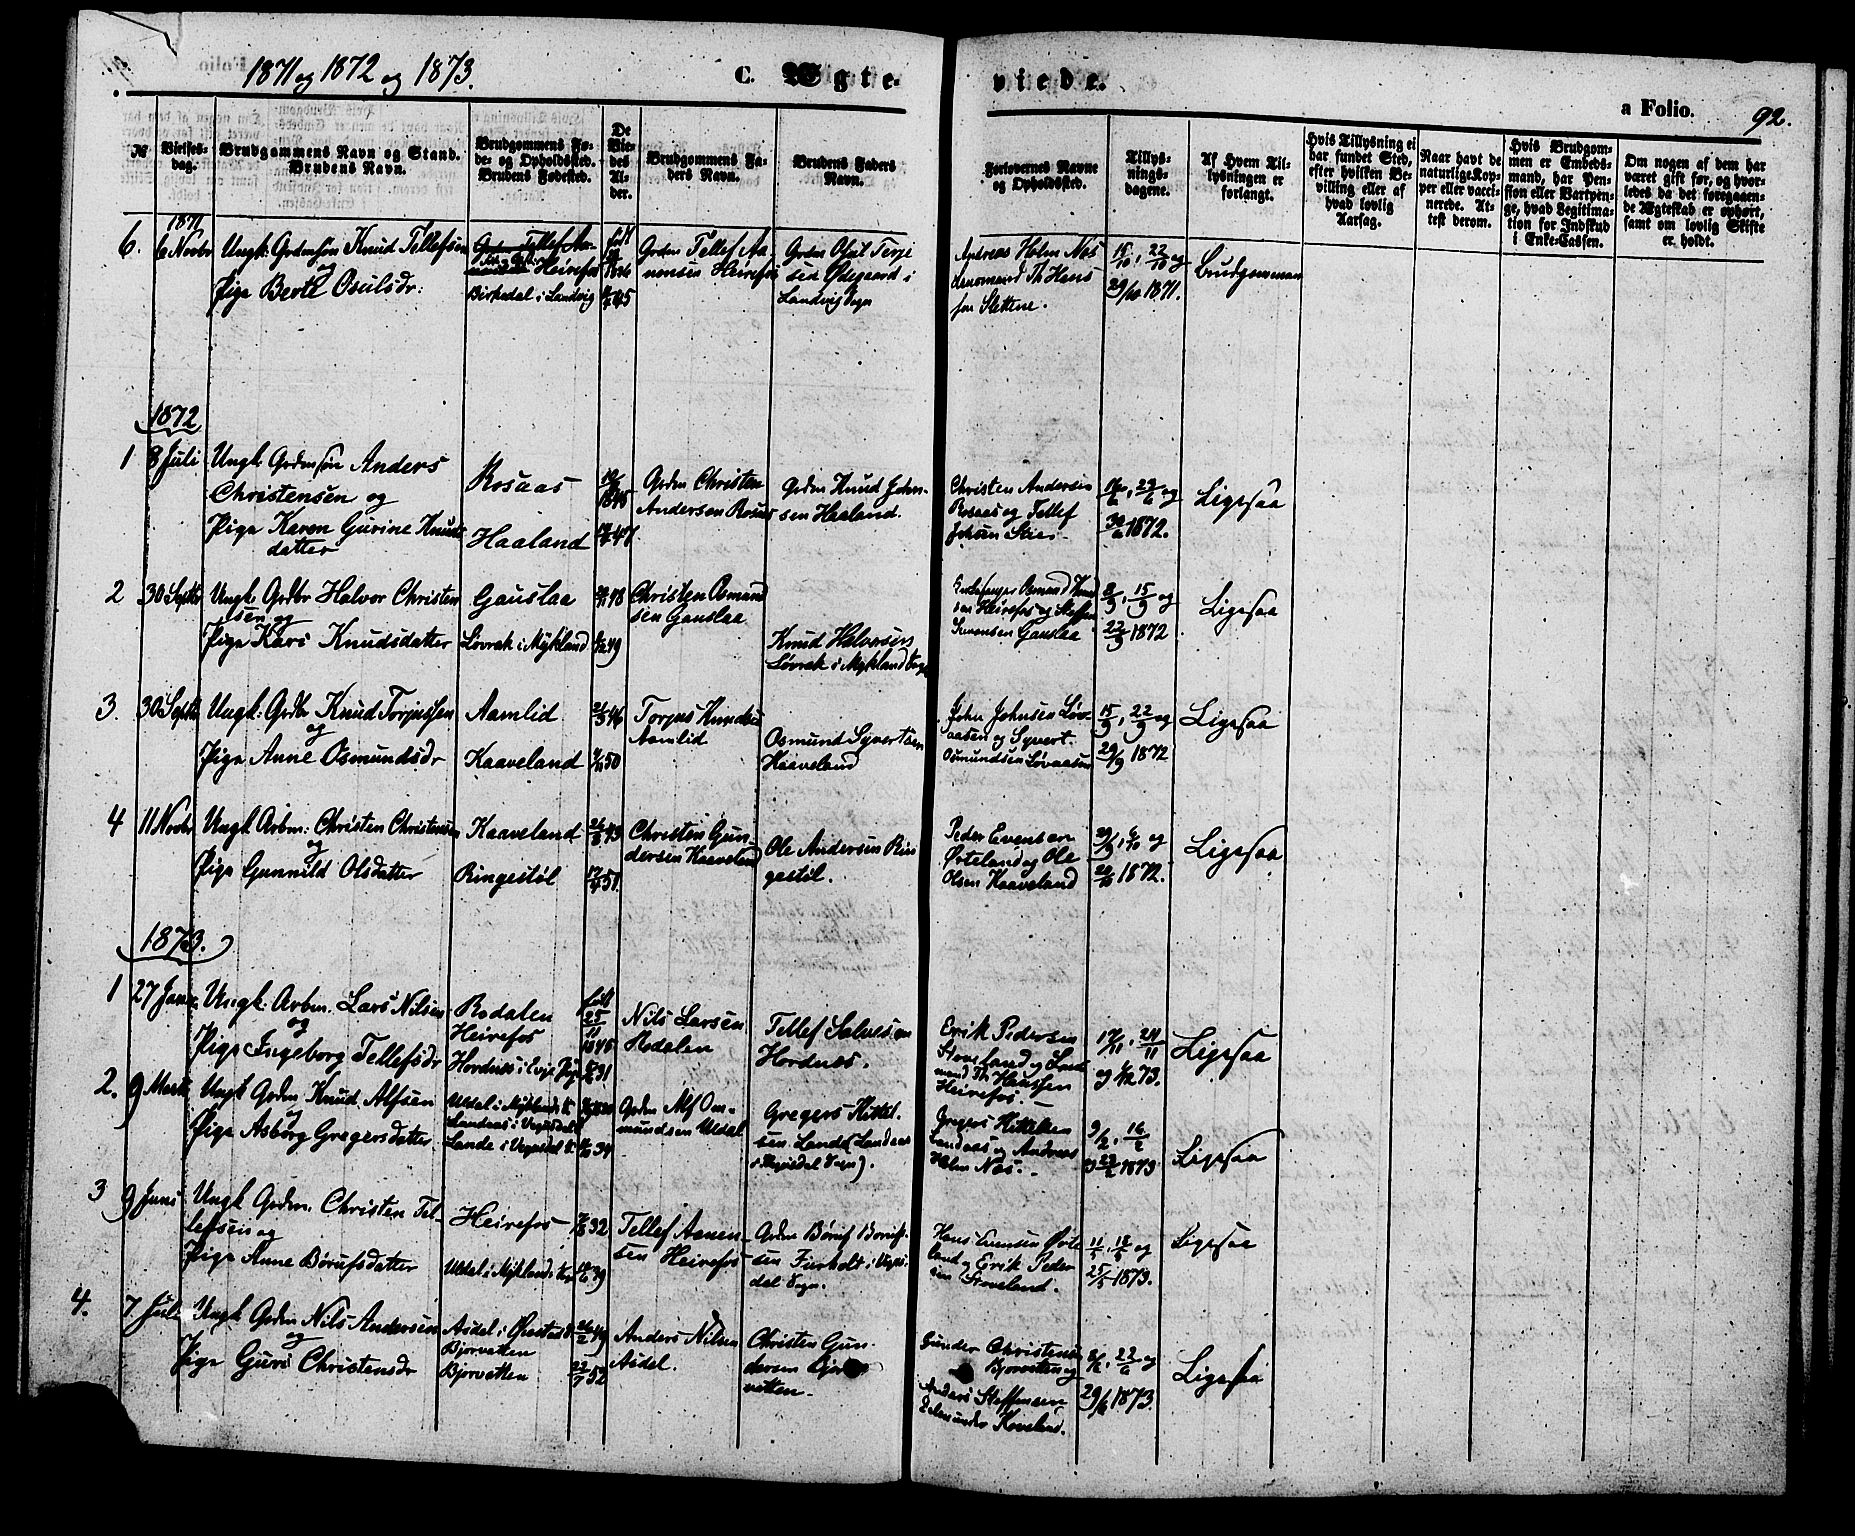 1871 og 1872 og 1873.
C. Ægte-
viede.
a Folio.
92.
№
Virlses-
dag.
Brudgommens Navn og Stand.
Brudens Navn.
Brudgommens Fø-
de- og Opholdssted.
Brudens Fødested.
De
Vie-
des
Al-
der.
Brudgommens Fa-
ders Navn.
Brudens Faders
Navn.
Forlovernes Navne
og Opholdssted.
Tillys-
nings-
dagene.
Af Hvem Til-
lysningen er
forlangt.
Hvis Tillysning ei
har fundet Sted,
efter hvilken Be-
villing eller af
hvad lovlig
Aarsag.
Naar havt de
naturlige Kop-
per eller vacci-
nerede. At-
test derom.
Hvis Brudgom-
men er Embeds-
mand, har Pen-
sion eller Vartpen-
ge, hvad Legitima-
tion for Indskud
i Enke-Cassen.
Om nogen af dem har
været gift før, og hvor-
ledes da det foregaaen-
de Ægteskab er ophørt,
samt om lovlig Skifte
er holdt.
1871
6. 6 Novbr Ungk: Grdmsøn Knud Tellefsen
og
Pige Berte Osulsdr:
Heirefos
Birkedal i Landvig
født
45
Grdm Tellef Aa-
nonsen Heirefos
Grdm Osul Terje
sen Ødegaard i
Landvig Sogn
Andreas Holm Næs
Lensmand Th Hans
sen Slettene.
15/10, 22/10 og
29/10 1871.
Brudgommen
1872
1 8 Juli Ungk Grdmsøn Anders
Christensen og
Pige Karen Gurine Knuds
datter
Rosaas
Haaland
1845
47
Grdm Christen
Andersen Rosaas
Grdm Knud John-
sen Haaland.
Christen Andersen
Rosaas og Tellef
Johsen Stie
16/6, 23/6 og
30/6 1872.
Ligesaa
2 30 Septb Ungk Grdbr Halvor Christen
sen og
Pige Kari Knudsdatter
Gauslaa
Løvrak i Mykland
48
49
Christen Osmund
sen Gauslaa
Knud Halvorsen
Løvrak i Mykland Sogn
Osmund Knud
sen Heirefos og Steffen
Sørensen Gauslaa
8/9, 15/9 og
22/9 1872
Ligesaa
3. 30 Septb Ungk: Grdbr Knud Torjussen
og
Pige Anne Osmundsdr
Aamlid
Kaaveland
46
50
Torjus Knudsen
Aamlid
Osmund Syvertsen
Kaaveland
John Johnsen Løv-
aasen og Syvert
Osmundsen Løvaasen
15/9, 22/9 og
29/9 1872
Ligesaa
4 11 Novbr Ungk Arbm: Christen Christensen
og
Pige Gunnild Olsdatter
Kaaveland
Ringestøl
43
51.
Christen Gun-
dersen Kaaveland
Ole Andersen Rin
gestøl.
Peder Evensen
Ørteland og Ole
Olsen Kaaveland
og
1872.
Ligesaa
1873.
1 27 Janr Ungk. Arbm. Lars Nilsen
og
Pige Ingeborg Tellefsdr
Rodalen
Heirefos
Hordnes i Evje
født
25
11
1845
31
Nils Larsen
Rodalen
Tellef Salvesen
Hordnes.
Erik Pedersen
Stoveland og Lens
mand Th Hanssen
Heirefos.
17/11, 24/11
og 1/12 73.
Ligesaa
2. 9 Marts Ungk Grdm Knud Alfsen
og
Pige Asborg Gregersdatter
Uldal i Myklands S.
Landaas i Vegusdal S
Lande i Vegusdal S.
34
Grdm Alf Om-
mundsen Uldal
Gregers Kittel-
sen Lande (Landaas
i Vegusdal Sogn).
Gregers Kittelsen
Landaas og Andreas
Holm Næs.
9/2, 16/2
og 23/2 1873
Ligesaa
3 9 Juni Ungk Grdm. Christen Tel-
lefsen og
Pige Anne Børufsdatter
Heirefos
Uldal i Myklands Sogn
32
49
Tellef Aanen-
sen Heirefos
Grdm Børuf Børuf-
sen Furholt i Vegus-
dal Sogn.
Hans Evensen Ørte
land og Erik Peder
sen Stoveland.
11/5, 18/5 og
25/5 1873.
Ligesaa
4. 7 Juli Ungk Grdm Nils Andersen
og
Pige Guri Christensdr
Asdal i Øiestad S.
Bjorvatten
Bjorvatten
49
52
Anders Nilsen
Asdal.
Christen Gun-
dersen Bjor-
vatten.
Gunder Christensen
Bjorvatten og
Anders Steffensen
Kaveland.
22/6 og
29/6 1873.
Ligesaa